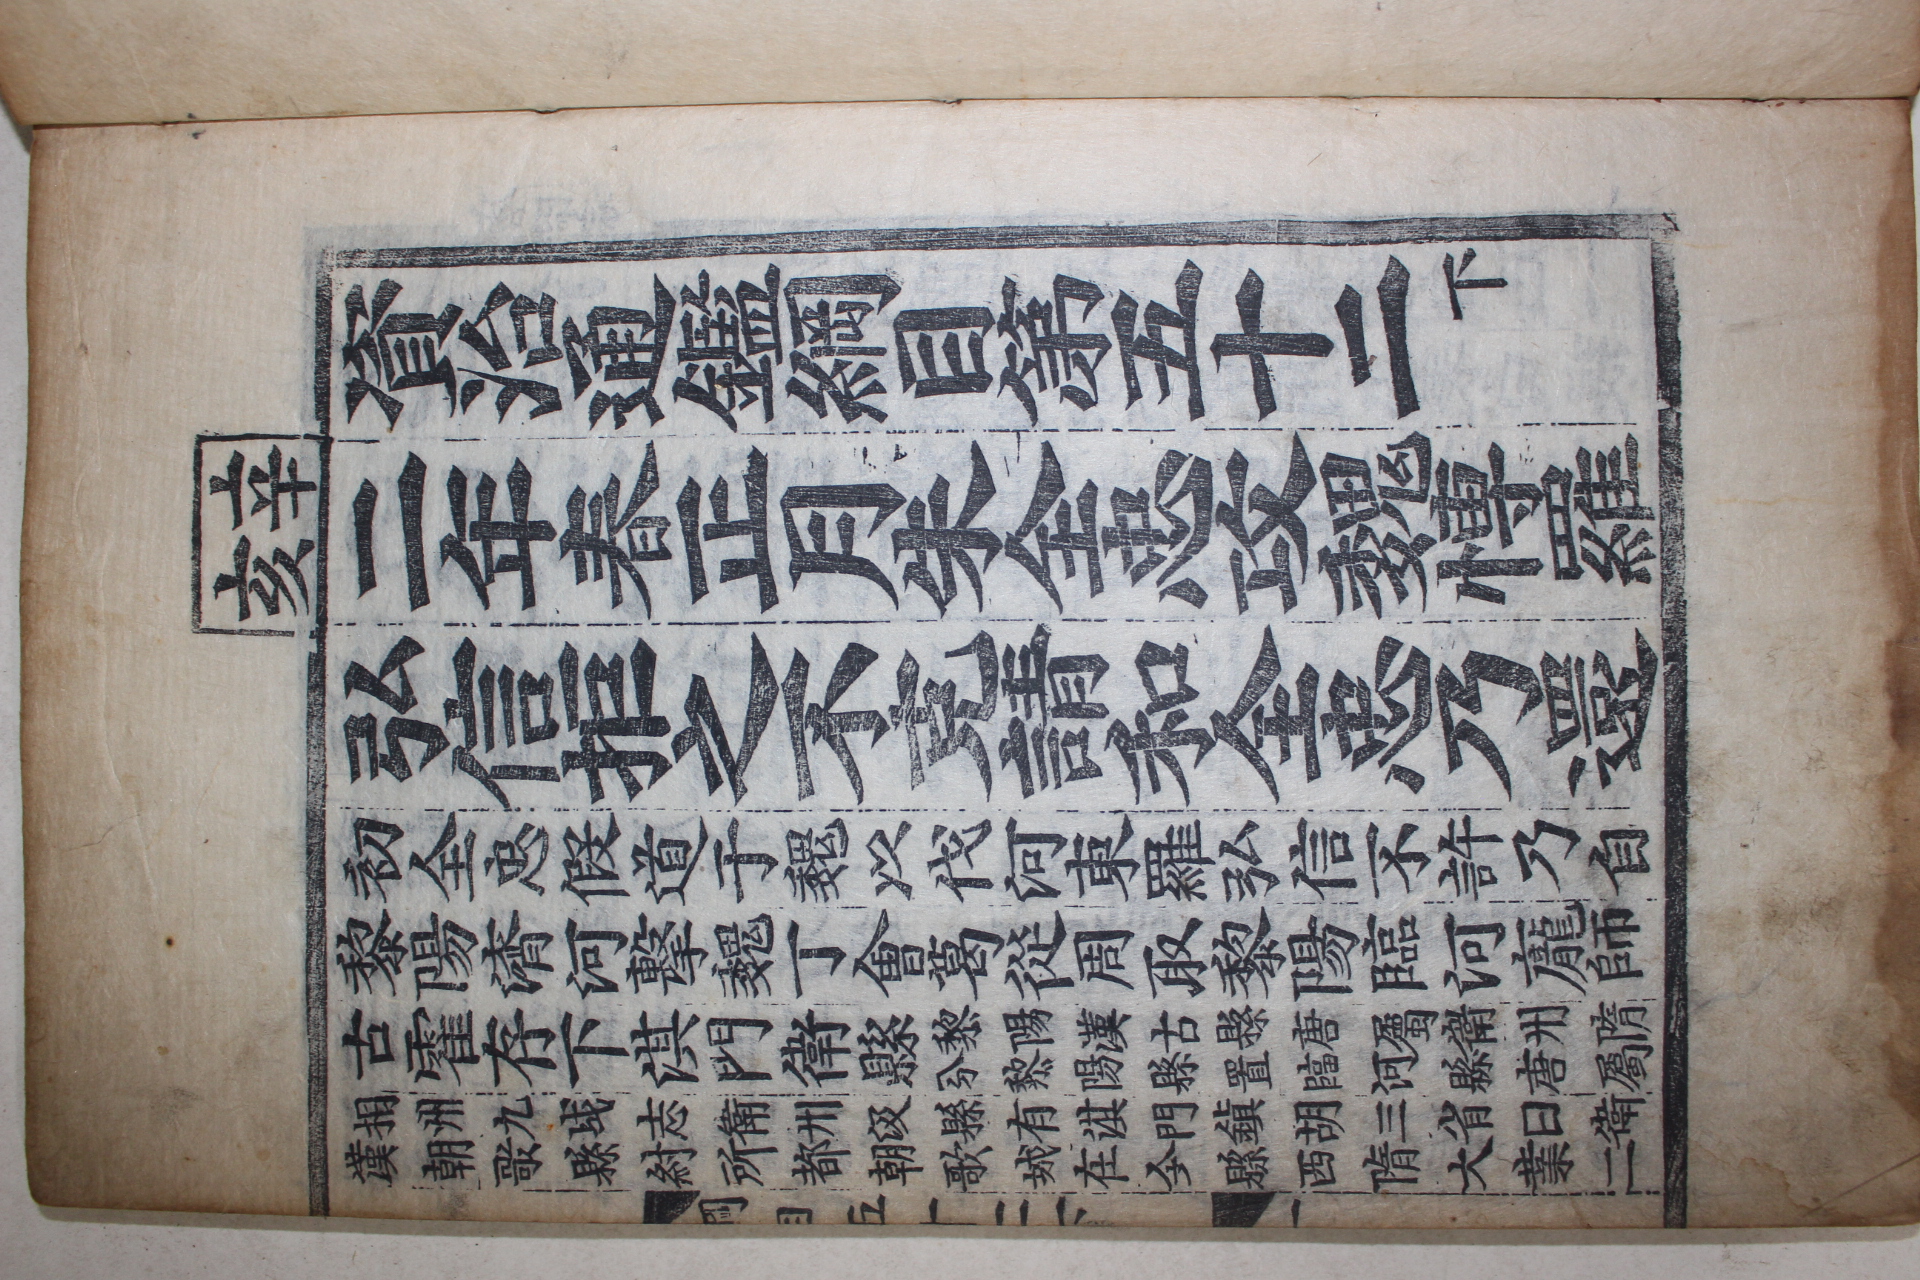 辛亥
資治通鑑綱目第五十二 下
二年春正月朱全忠攻魏愽羅
弘信拒之不克請和全忠乃還
初全忠假道于魏以伐河東羅弘信不許乃自
黎陽濟河擊魏丁會葛從周取黎陽臨河龐師
古霍存下淇門衛縣
黎陽漢古縣唐屬衛州隋
分黎陽縣置臨河縣唐屬
相州九域志衛州汲縣有淇門鎮胡三省曰衛
漢朝歌縣紂所都朝歌城在今縣西隋大業二
綱目五十二下
一